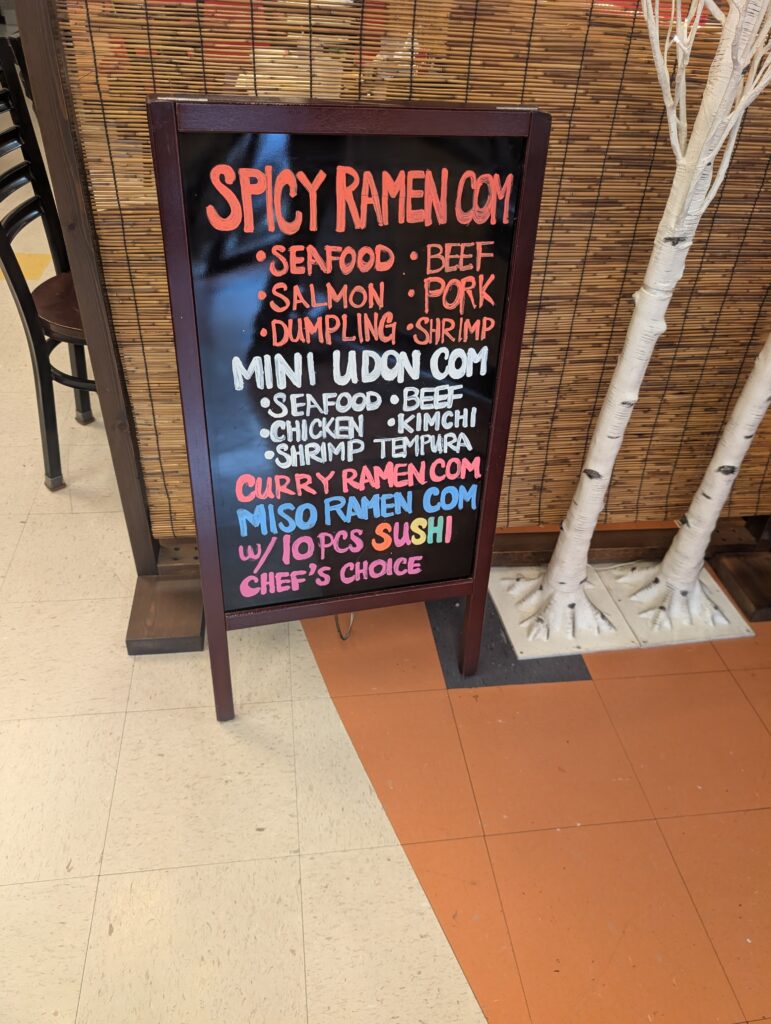 SPICY RAMEN COM
• SEAFOOD • BEEF
• SALMON • PORK
• DUMPLING • SHRIMP
MINI UDON COM
• SEAFOOD • BEEF
• CHICKEN • KIMCHI
• SHRIMP TEMPURA
CURRY RAMEN COM
MISO RAMEN COM
W/ 10 PCS SUSHI
CHEF'S CHOICE